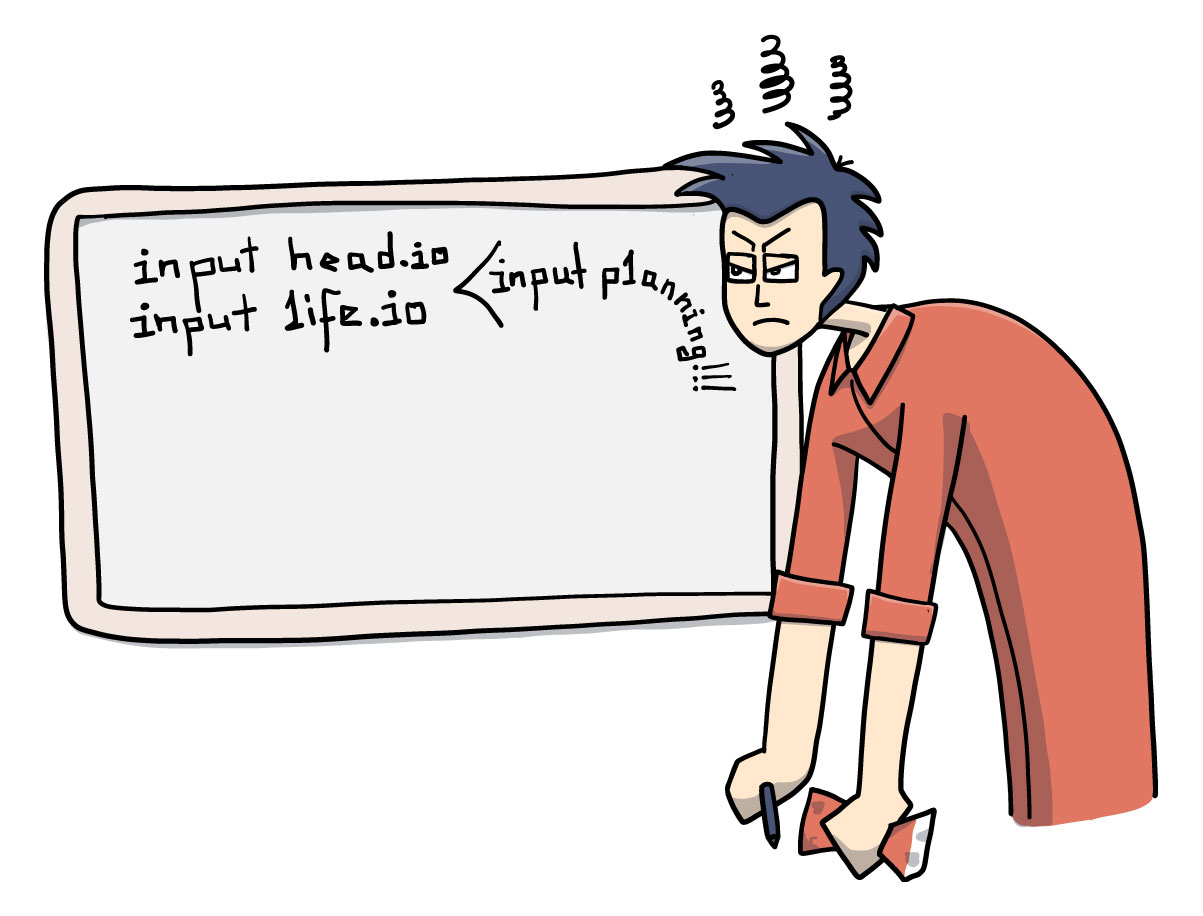 input head.io
input life.io
input planning!!!